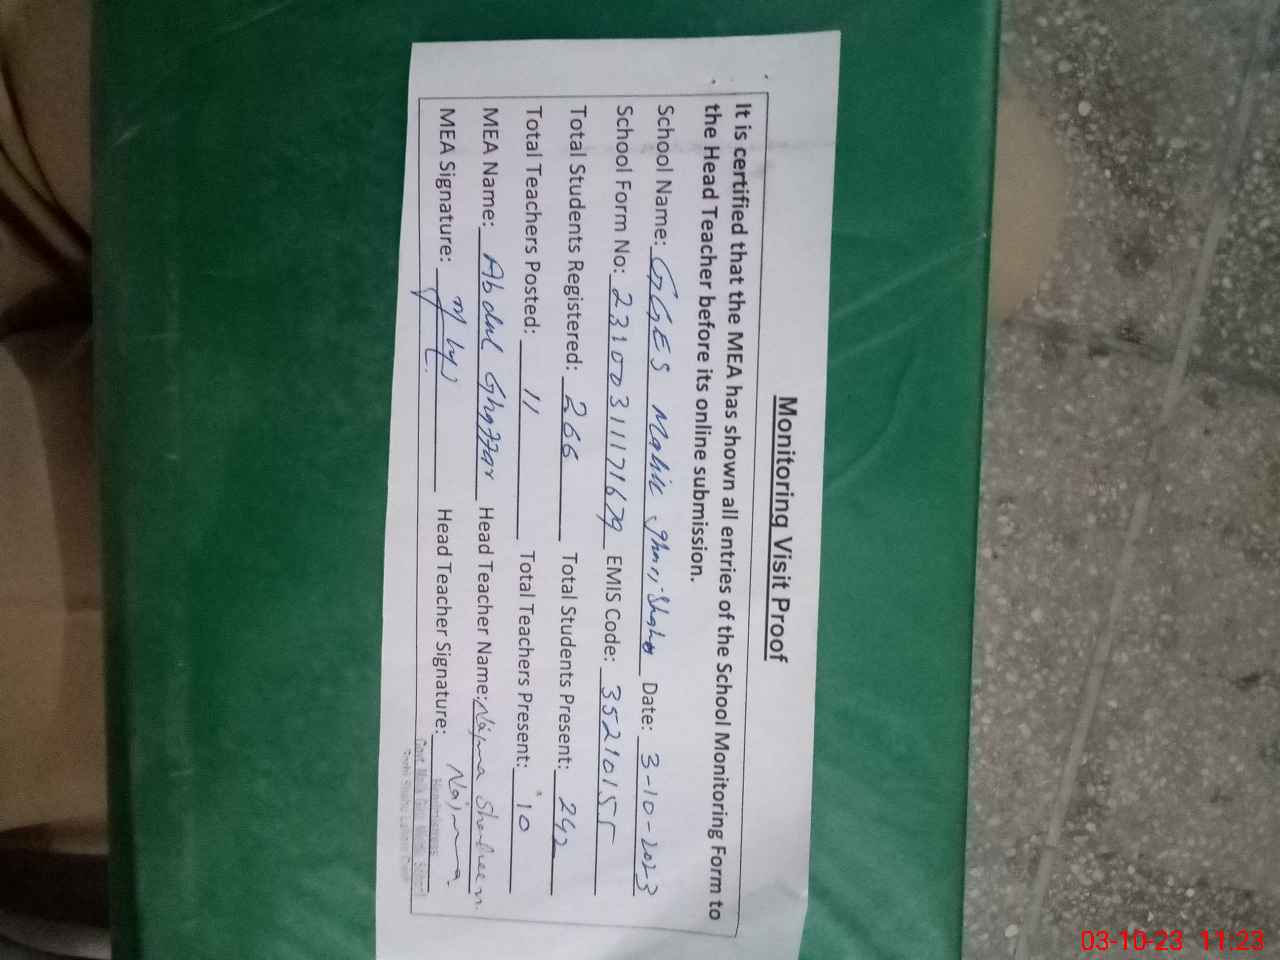 Monitoring Visit Proof
It is certified that the MEA has shown all entries of the School Monitoring Form to
the Head Teacher before its online submission.
School Name: GGES Date: 3-10-2023
School Form No: EMIS Code: 35210155
Total Students Registered: 266 Total Students Present: 242
Total Teachers Posted: 11 Total Teachers Present: 10
MEA Name: Abdul Ghaffar Head Teacher Name: Najma
MEA Signature: Head Teacher Signature: Najma
Headmistress
03-10-23 11:23